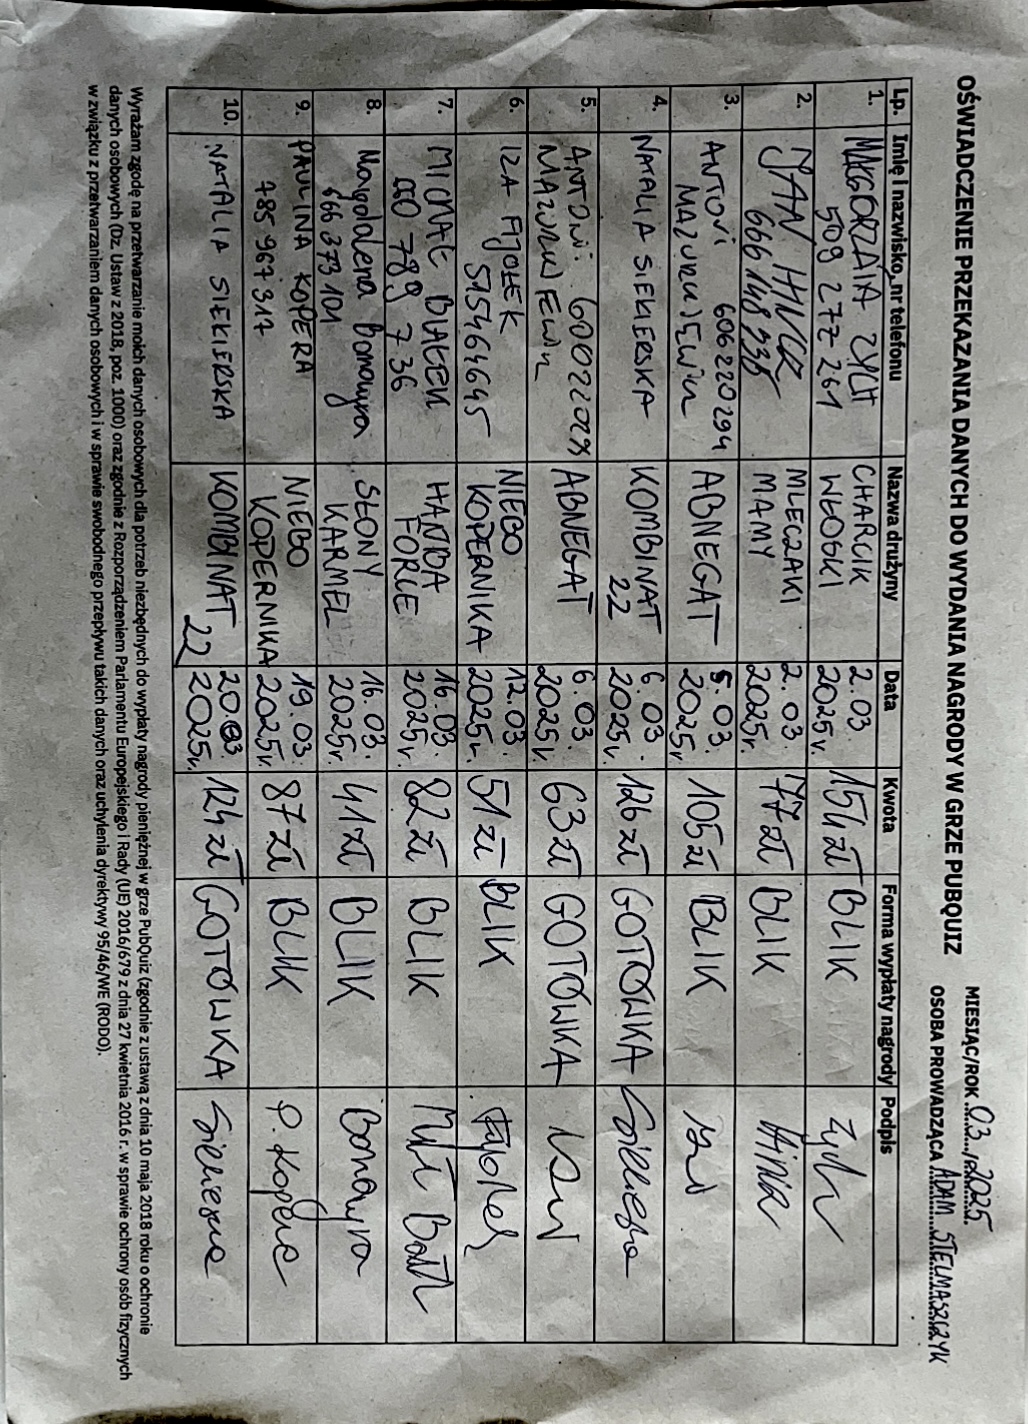 OŚWIADCZENIE PRZEKAZANIA DANYCH DO WYDANIA NAGRODY W GRZE PUBQUIZ
MIESIĄC/ROK 03.2025
OSOBA PROWADZĄCA ADAM STELMASZCZYK
Lp. Imię i nazwisko, nr telefonu Nazwa drużyny Data Kwota Forma wypłaty nagrody Podpis
1. MAŁGORZATA ZYCH CHARCIK 2.03 154zł BLIK Zych
509 277 261 WŁOSKI 2025r.
2. JAN HINCZ MLECZAKI 2.03. 77zł BLIK
MAMY 2025r.
3. ANTONI 606220294 ABNEGAT 5.03. 105zł BLIK
2025r.
4. NATALIA SIEKIERSKA KOMBINAT 6.03. 126zł GOTÓWKA
22 2025r.
5. ANTONI ABNEGAT 6.03. 63zł GOTÓWKA
2025r.
6. IZA FIJOŁEK NIEBO 12.03. 51zł BLIK Fijołek
515464645 KOPERNIKA 2025r.
7. MICHAŁ BIAŁEK HANDA 16.03. 82zł BLIK
789 736 FORCE 2025r.
8. Magdalena Bonayra SŁONY 16.03. 41zł BLIK Bonayra
666 373 101 KARMEL 2025r.
9. PAULINA KOPERA NIEBO 19.03. 87zł BLIK P. Kopera
785 967 317 KOPERNIKA 2025r.
10. NATALIA SIEKIERSKA KOMBINAT 20.03. 124zł GOTÓWKA
22 2025r.
Wyrażam zgodę na przetwarzanie moich danych osobowych dla potrzeb niezbędnych do wypłaty nagrody pieniężnej w grze PubQuiz (zgodnie z ustawą z dnia 10 maja 2018 roku o ochronie
danych osobowych (Dz. Ustaw z 2018, poz. 1000) oraz zgodnie z Rozporządzeniem Parlamentu Europejskiego i Rady (UE) 2016/679 z dnia 27 kwietnia 2016 r. w sprawie ochrony osób fizycznych
w związku z przetwarzaniem danych osobowych i w sprawie swobodnego przepływu takich danych oraz uchylenia dyrektywy 95/46/WE (RODO).